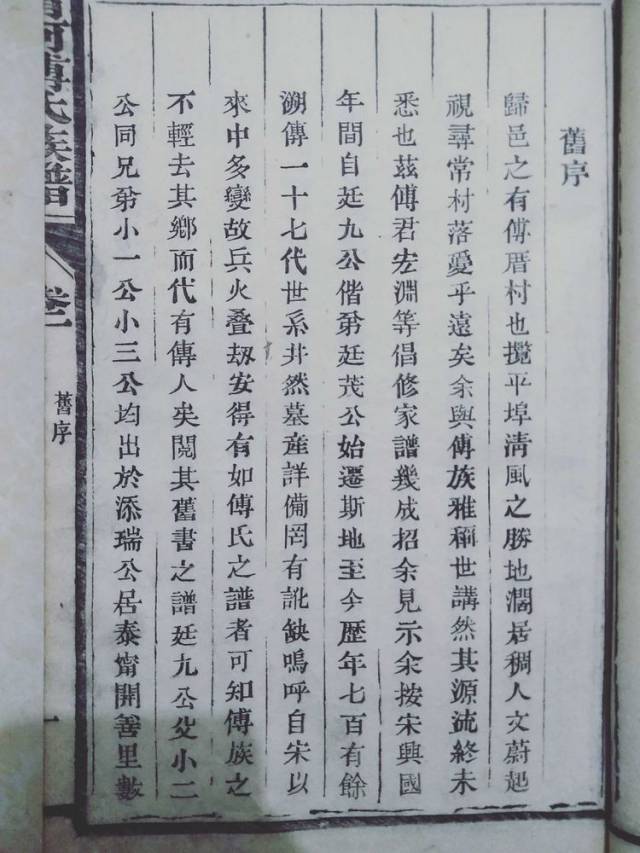 舊序
歸邑之有傅厝村也攬平埠清風之勝地濶居稠人文蔚起
視尋常村落敻乎遠矣余與傅族雅稱世講然其源流終未
悉也茲傅君宏淵等倡修家譜幾成招余見示余按宋興國
年間自廷九公偕弟廷茂公始遷斯地至今歷年七百有餘
溯傳一十七代世系井然墓産詳備罔有訛缺嗚呼自宋以
來中多變故兵火叠刼安得有如傅氏之譜者可知傅族之
不輕去其鄉而代有傳人矣閲其舊書之譜廷九公父小二
公同兄弟小一公小三公均出於添瑞公居泰甯開善里數
河傅氏族譜
卷一
舊序
一